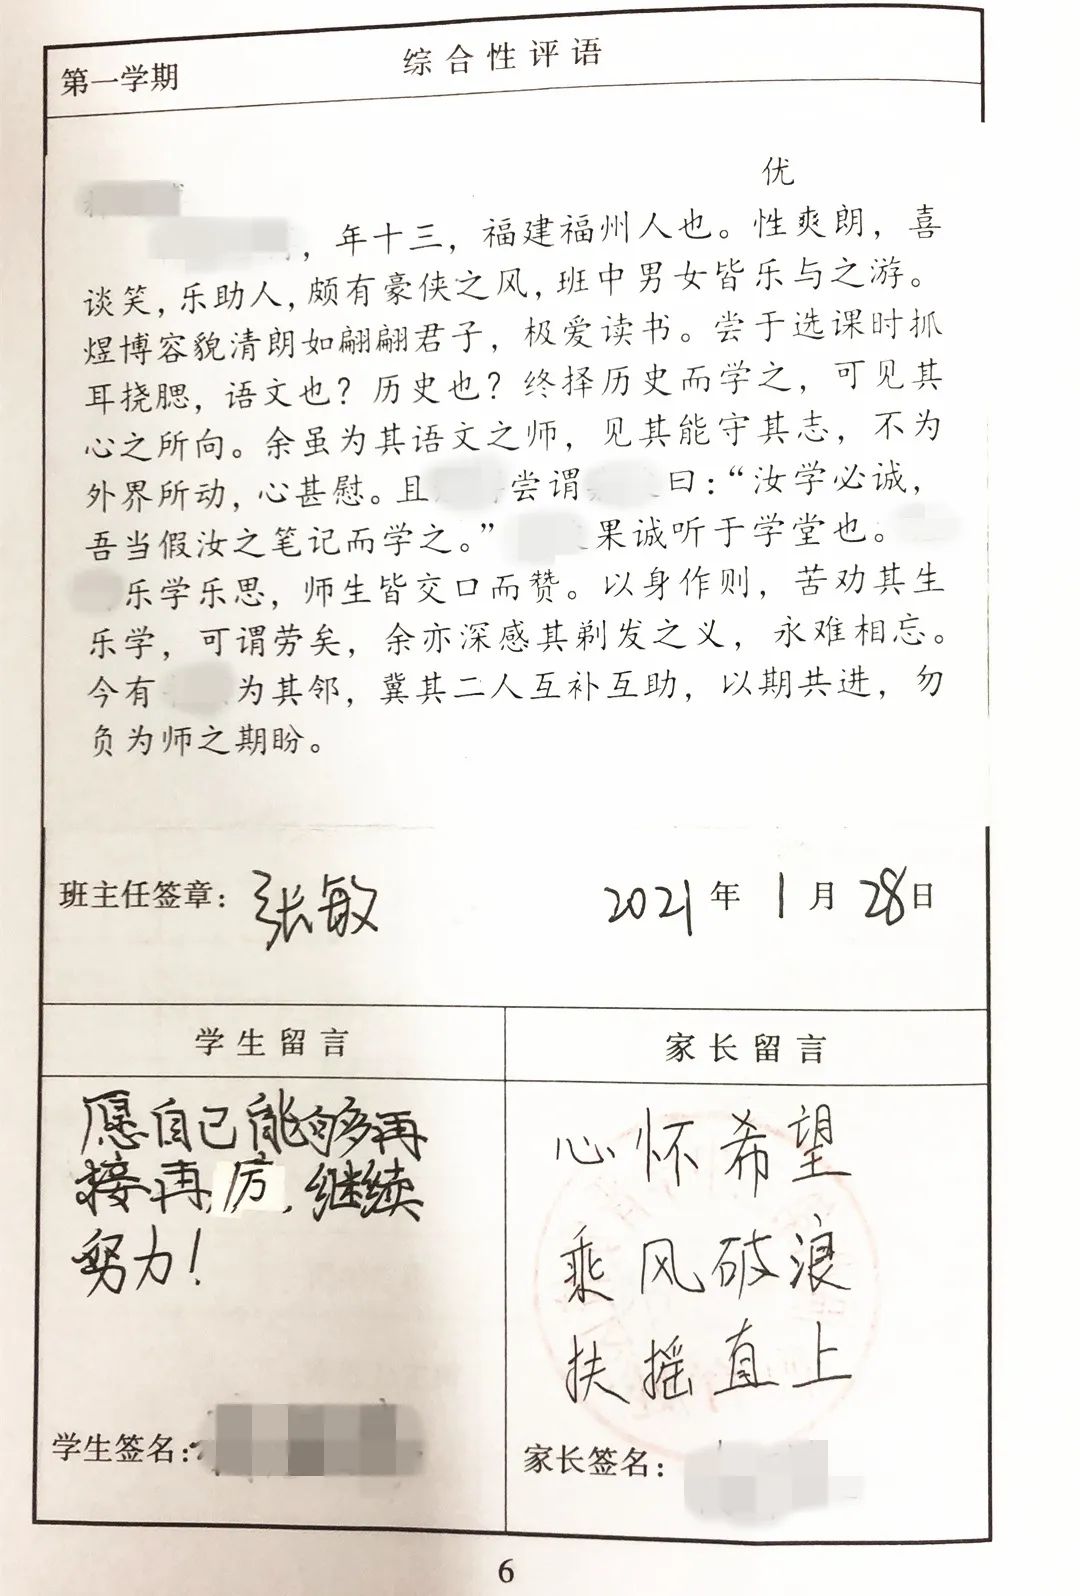 第一学期 综合性评语
优
，年十三，福建福州人也。性爽朗，喜
谈笑，乐助人，颇有豪侠之风，班中男女皆乐与之游。
煜博容貌清朗如翩翩君子，极爱读书。尝于选课时抓
耳挠腮，语文也？历史也？终择历史而学之，可见其
心之所向。余虽为其语文之师，见其能守其志，不为
外界所动，心甚慰。且 尝谓 曰：“汝学必诚，
吾当假汝之笔记而学之。” 果诚听于学堂也。
乐学乐思，师生皆交口而赞。以身作则，苦劝其生
乐学，可谓劳矣，余亦深感其剃发之义，永难相忘。
今有 为其邻，冀其二人互补互助，以期共进，勿
负为师之期盼。
班主任签章：张敏 2021年1月28日
学生留言
愿自己能够再
接再厉，继续
努力！
学生签名：
家长留言
心怀希望
乘风破浪
扶摇直上
家长签名：
6